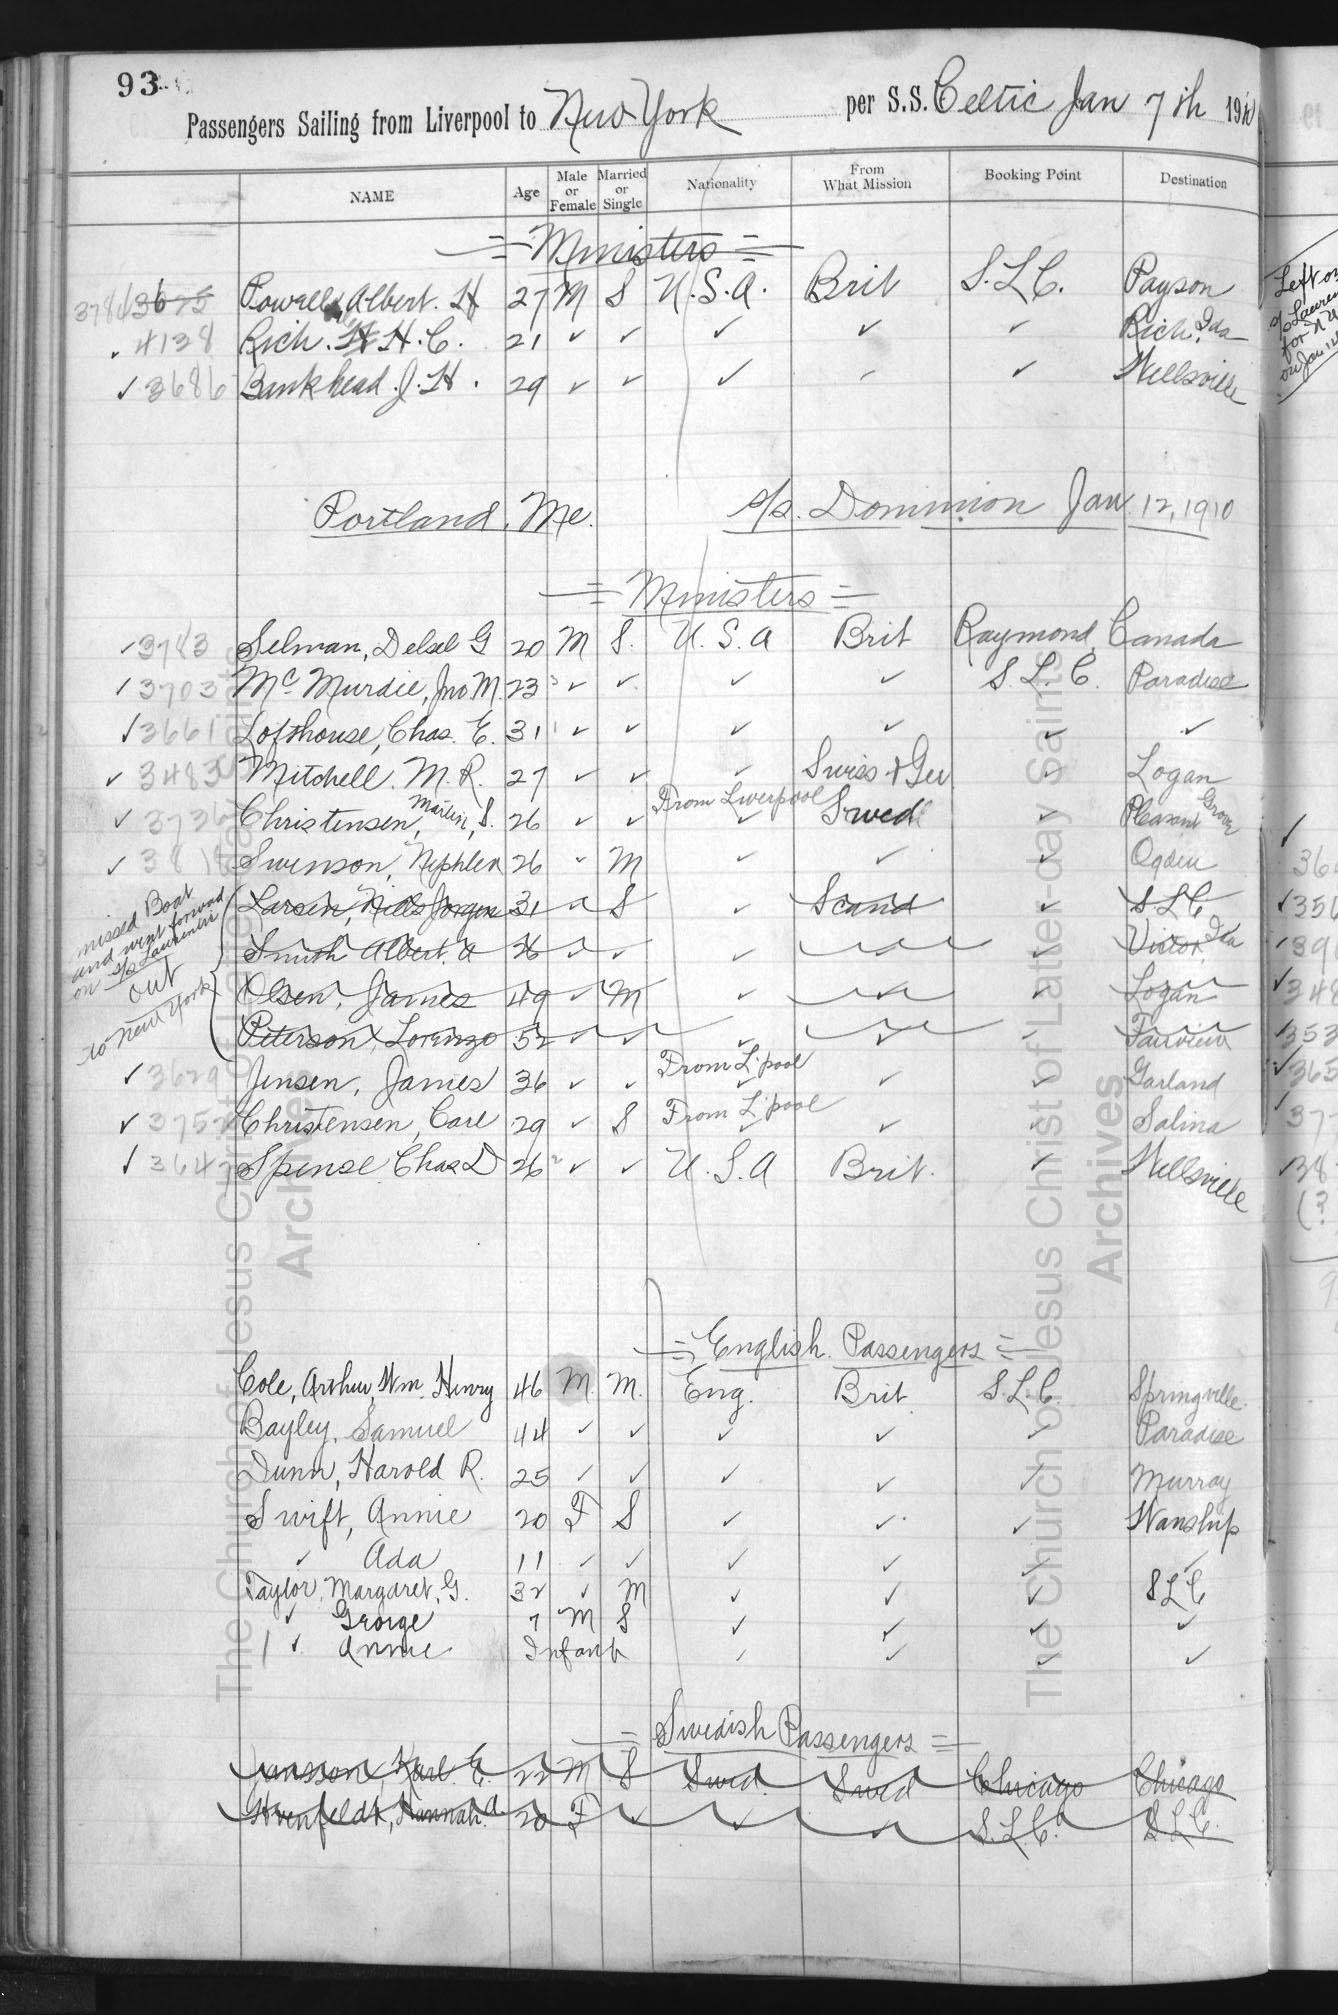 93
Passengers Sailing from Liverpool to New York per S.S. Celtic Jan 7th 1910
NAME Age Male or Female Married or Single Nationality From What Mission Booking Point Destination
= Ministers =
3675 Powell, Albert. H 27 M S U.S.A. Brit S.L.C. Payson
✓ 4138 Rich. H. C. 21 ✓ ✓ ✓ ✓ ✓ Rich, Ida
✓ 3686 Bankhead. J. H. 29 ✓ ✓ ✓ ✓ ✓ Wellsville
Portland, Me. s/s. Dominion Jan 12, 1910
= Ministers =
✓ 3783 Selman, Delsel G 20 M S. U.S.A Brit Raymond, Canada
✓ 3703 Mc Murdie, Jno M. 23 ✓ ✓ ✓ ✓ S.L.C. Paradise
✓ 3661 Lofthouse, Chas. E. 31 ✓ ✓ ✓ ✓ ✓ ✓
✓ 3483 Mitchell. M. R. 27 ✓ ✓ ✓ Swiss & Ger ✓ Logan
✓ 3736 Christensen, S. 26 ✓ ✓ From Liverpool ✓ Swed ✓ Pleasant Grove
✓ 381 Swenson, Nephler 26 ✓ M ✓ ✓ ✓ Ogden
missed Boat and went forward on s/s Laurentic out to New York
Larsen, Nills Jorgen 31 ✓ S ✓ Scand ✓ S L C
Smith Albert. A 26 ✓ ✓ ✓ ✓ ✓ Victor, Ida
Olsen, James 49 ✓ M ✓ ✓ ✓ Logan
Peterson, Lorenzo 52 ✓ ✓ ✓ ✓ ✓ Fairview
✓ 3629 Jensen, James 36 ✓ ✓ From L'pool ✓ ✓ ✓ Garland
✓ 3752 Christensen, Carl 29 ✓ S From L'pool ✓ ✓ ✓ Salina
✓ 364 Spense Chas D 26 ✓ ✓ U.S.A Brit. ✓ Wellsville
= English Passengers =
Cole, Arthur, Wm. Henry 46 M. M. Eng. Brit S.L.C. Springville
Bayley, Samuel 44 ✓ ✓ ✓ ✓ ✓ Paradise
Dunn, Harold R. 25 ✓ ✓ ✓ ✓ ✓ Murray
Swift, Annie 20 F S ✓ ✓ ✓ Wanship
✓ Ada 11 ✓ ✓ ✓ ✓ ✓ ✓
Taylor, Margaret. G. 32 ✓ M ✓ ✓ ✓ S L C
✓ George 7 M S ✓ ✓ ✓ ✓
✓ Annie Infant ✓ ✓ ✓ ✓
= Swedish Passengers =
Karl. E. 22 M S Swed. Swed Chicago Chicago
Hannah. A. 20 F ✓ ✓ ✓ S.L.C. S.L.C.
The Church of Jesus Christ of Latter-day Saints Archives
The Church of Jesus Christ of Latter-day Saints Archives